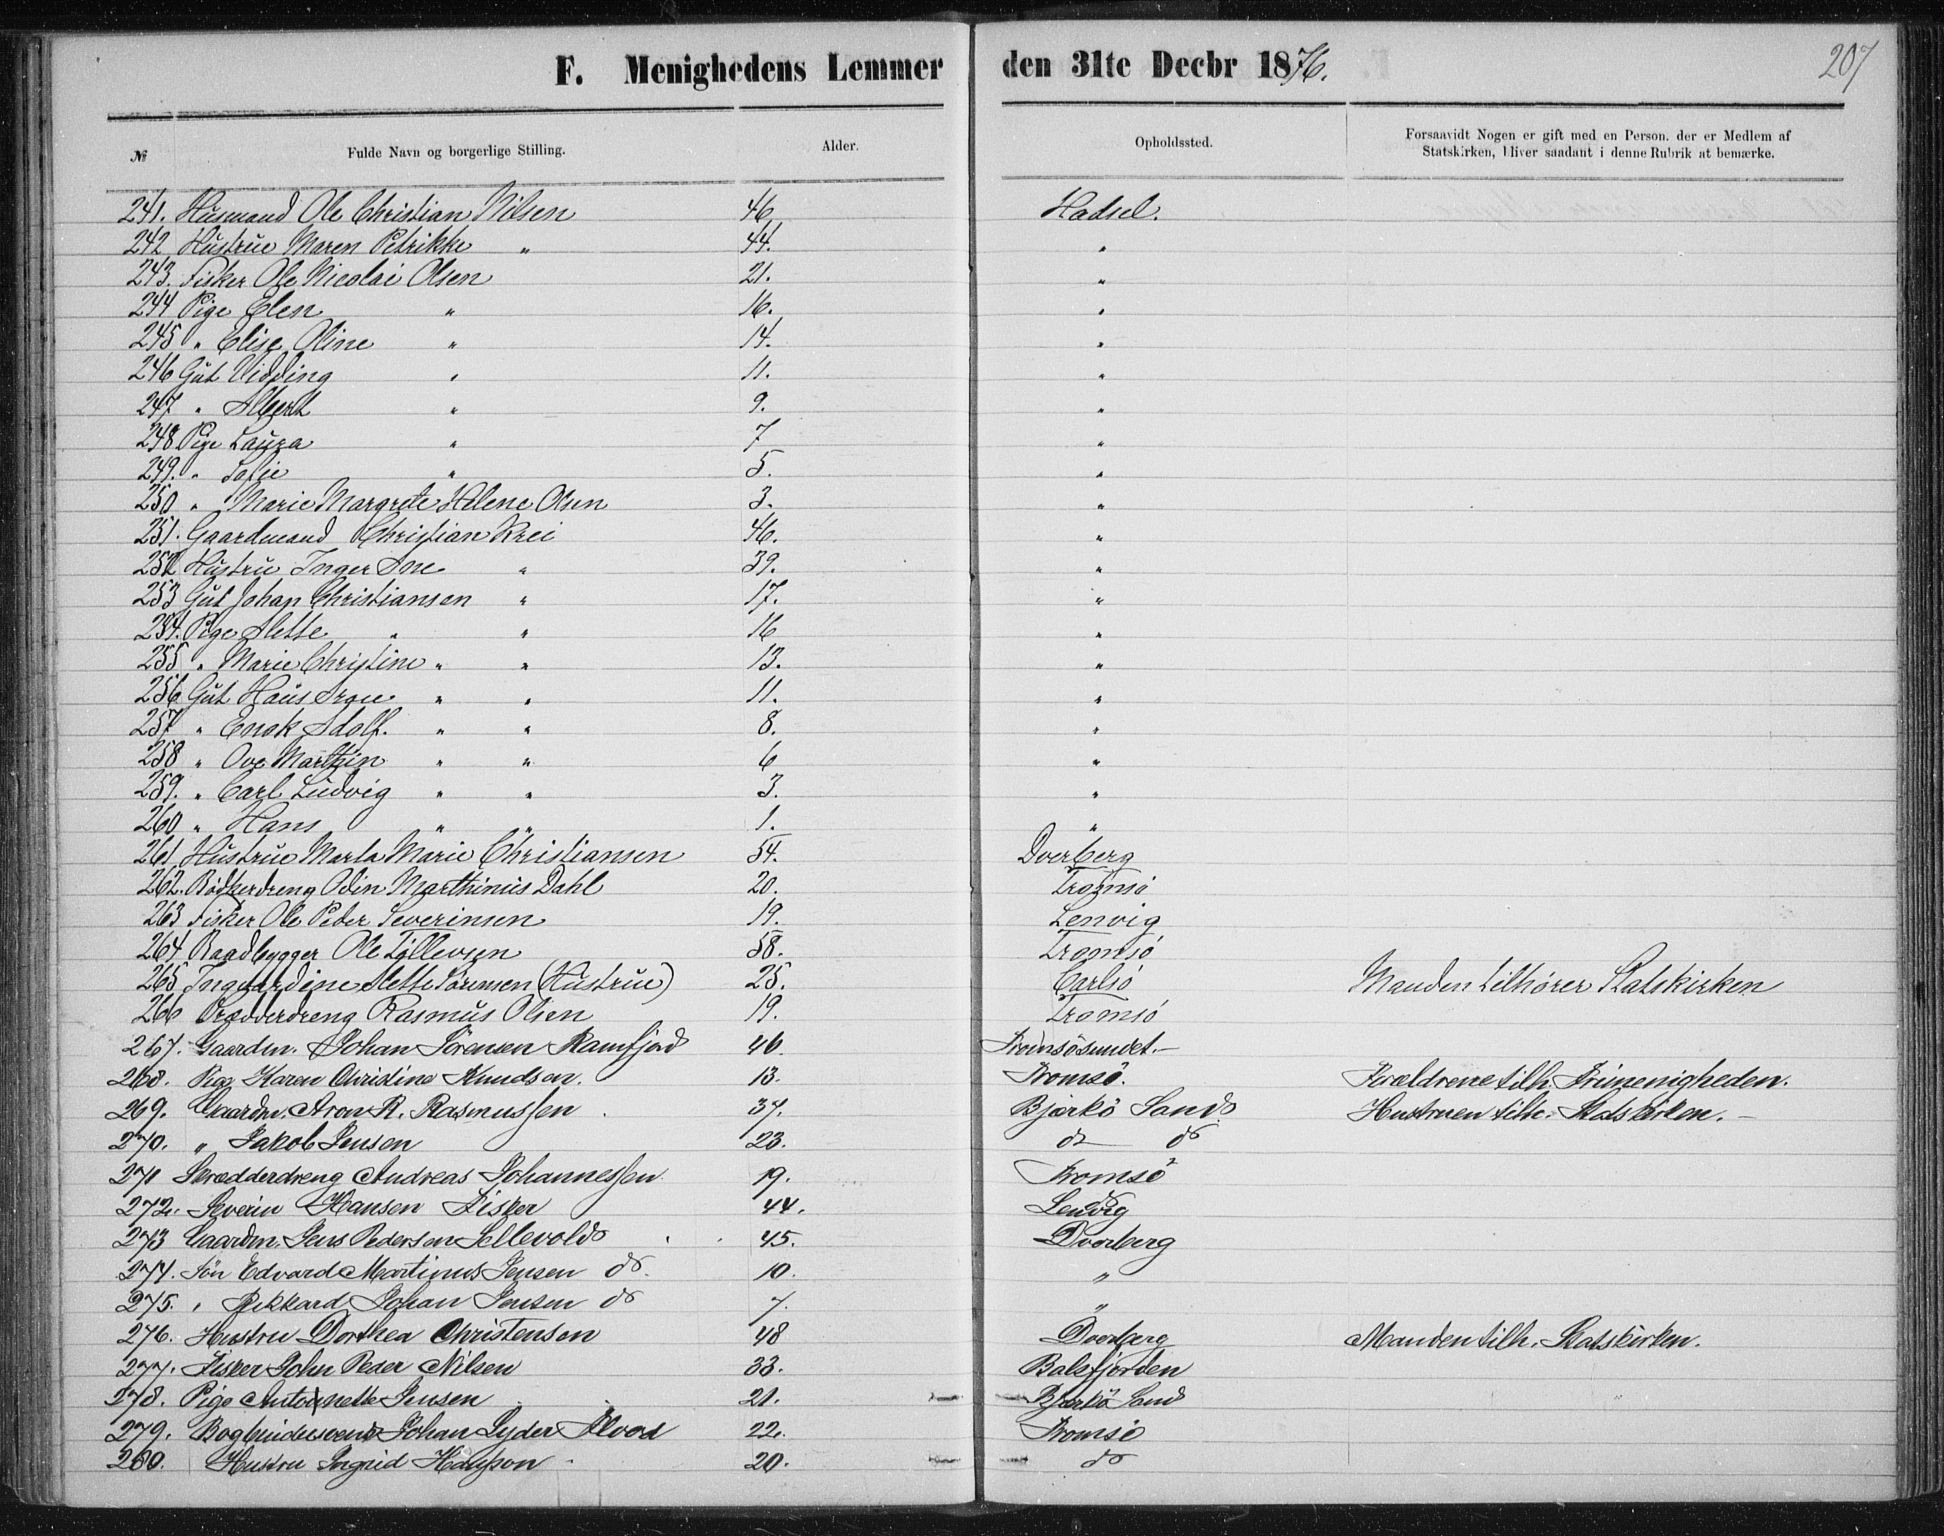 F. Menighedens Lemmer den 31te Decbr 1876. 207
№ Fulde Navn og borgerlige Stilling. Alder. Opholdssted. Forsaavidt Nogen er gift med en Person, der er Medlem af
Statskirken, bliver saadant i denne Rubrik at bemærke.
241. Husmand Ole Christian Nilsen 46 Hadsel.
242 Hustrue Maren Petrikke " 44. "
243. Fisker Ole Nicolai Olsen 21. "
244 Pige Elen " 16. "
245 " Elise Oline " 14. "
246 Gut Vidding " 11. "
247 " Albert " 9. "
248 Pige Laura " 7 "
249. " Sofie " 5. "
250 " Marie Margrete Helene Olsen 3. "
251. Gaardmand Christian Krei 46. "
252 Hustru Inger Ane " 39. "
253 Gut Johan Christiansen " 17. "
254. Pige Mette " " 16 "
255 " Marie Christine " " 13. "
256 Gut Hans Aron " " 11. "
257 " Enok Adolf. " " 8. "
258 " Ove Marthin " " 6 "
259. " Carl Ludvig " " 3. "
260 " Hans " " 1. "
261 Hustrue Marta Marie Christiansen 54. Dverberg
262. Bødkerdreng Odin Marthinius Dahl 20. Tromsö
263 Fisker Ole Peder Severinsen 19. Lenvig
264 Baadbygger Ole Tillevsen 58. Tromsö
265 Ingvardine Mette Sørensen (Hustrue) 25. Carlsö Manden tilhører Statskirken
266 Skrædderdreng Rasmus Olsen 19. Tromsö
267. Gaardm. Johan Sörensen Ramfjord 46. Tromsösundet.
268. Pige Karen Christine Knudsen. 13. Tromsö. Forældrene tilh. Frimenigheden.
269. Gaardm. Aron R. Rasmussen 34. Bjarkö Sand Hustruen tilh. Statskirken.
270. " Jakob Jensen 23. do do
271 Skrædderdreng Andreas Johannessen 19. Tromsö
272. Severin Hansen Fisker 44. Lenvig
273 Gaardm. Jens Pedersen Sellevold 45. Dverberg
274. Søn Edvard Martinus Jensen do. 10. "
275. " Rikkard Johan Jensen do 7. "
276. Hustru Dorthea Christensen 48 Dverberg Manden tilh. Statskirken.
277. Fisker John Peder Nilsen 33. Balsfjorden
278. Pige Antonette Jensen 21. Bjarkö Sand
279. Bogbindersvend Johan Lyder 22. Tromsö
280. Hustru Ingrid Hansson 20. do